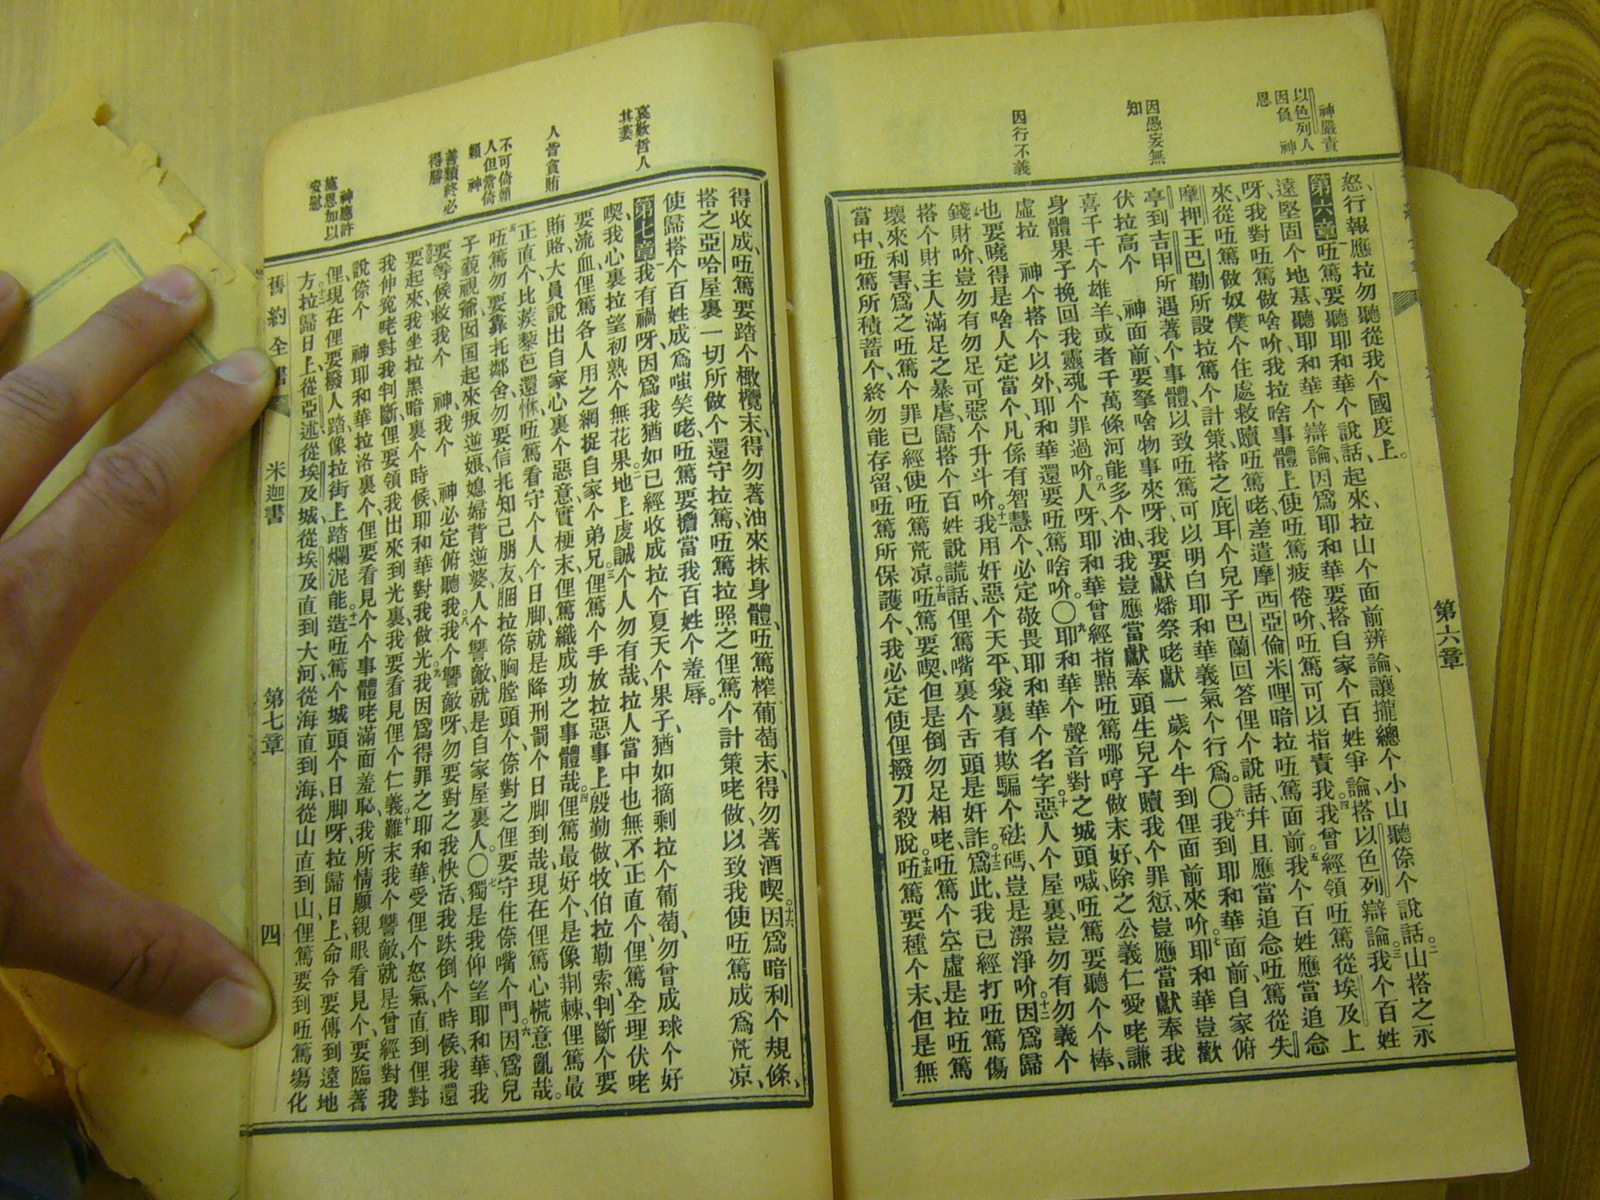 神嚴責
以色列人
因負　神
恩
因愚妄無
知
因行不義
第六章
怒、行報應拉勿聽從我个國度上。
第六章吘篤要聽耶和華个說話、起來、拉山个面前辨論、讓攏總个小山聽倷个說話、山搭之永
遠堅固个地基、聽耶和華个辯論、因爲耶和華要搭自家个百姓爭論、搭以色列辯論、我个百姓
呀、我對吘篤做啥吤、我拉啥事體上使吘篤疲倦吤、吘篤可以指責我、我曾經領吘篤從埃及上
來、從吘篤做奴僕个住處救贖吘篤咾差遣摩西亞倫米哩暗拉吘篤面前、我个百姓應當追念
摩押王巴勒所設拉篤个計策、搭之庇耳个兒子巴蘭回答俚个說話、幷且應當追念吘篤從失
亭到吉甲所遇著个事體、以致吘篤可以明白耶和華義氣个行爲。〇我到耶和華面前、自家俯
伏拉高个　神面前、要拏啥物事來呀、我要獻燔祭咾獻一歲个牛到俚面前來吤、耶和華豈歡
喜千千个雄羊、或者千萬條河能多个油、我豈應當獻奉頭生兒子贖我个罪愆、豈應當獻奉我
身體果子挽回我靈魂个罪過吤、人呀、耶和華曾經指點吘篤哪哼做末好、除之公義仁愛咾謙
虛拉　神个搭个以外、耶和華還要吘篤啥吤。〇耶和華个聲音對之城頭喊、吘篤要聽个个棒、
也要曉得是啥人定當个、凡係有智慧个、必定敬畏耶和華个名字、惡人个屋裏、豈勿有勿義个
錢財吤、豈勿有勿足可惡个升斗吤、我用奸惡个天平、袋裏有欺騙个砝碼、豈是潔淨吤、因爲歸
搭个財主人滿足之暴虐、歸搭个百姓說謊話、俚篤嘴裏个舌頭是奸詐、爲此、我已經打吘篤傷
壞來利害、爲之吘篤个罪、已經使吘篤荒凉、吘篤要喫、但是倒勿足相、咾吘篤个空虛是拉吘篤
當中、吘篤所積蓄个、終勿能存留、吘篤所保護个、我必定使俚撥刀殺脫、吘篤要種个末、但是無
得收成、吘篤要踏个橄欖末、得勿著油來抹身體、吘篤榨葡萄末、得勿著酒喫、因爲暗利个規條、
搭之亞哈屋裏一切所做个、還守拉篤、吘篤拉照之俚篤个計策咾做、以致我使吘篤成爲荒凉、
使歸搭个百姓成爲嗤笑、咾吘篤要擔當我百姓个羞辱。
第七章我有禍呀、因爲我猶如已經收成拉个夏天个果子、猶如摘剩拉个葡萄、勿曾成球个好
喫、我心裏拉望初熟个無花果、地上虔誠个人勿有哉、拉人當中也無不正直个、俚篤全埋伏咾
要流血、俚篤各人用之網捉自家个弟兄、俚篤个手放拉惡事上殷勤做、牧伯拉勒索、判斷个要
賄賂、大員說出自家心裏个惡意實梗末、俚篤織成功之事體哉、俚篤最好个是像荆棘、俚篤最
正直个比蒺藜芭還怺、吘篤看守个人个日脚、就是降刑罰个日脚到哉、現在俚篤心慌意亂哉。
吘篤勿要靠托鄰舍、勿要信托知己朋友、胭拉倷胸膛頭个、倷對之俚要守住倷嘴个門、因爲兒
子藐視爺、囡囝起來叛逆娘、媳婦背逆婆、人个讐敵、就是自家屋裏人。〇獨是我仰望耶和華、我
要等候救我个　神、我个　神必定俯聽我、我个讐敵呀、勿要對之我快活、我跌倒个時候、我還
要起來、我坐拉黑暗裏个時候、耶和華對我做光、我因爲得罪之耶和華、受俚个怒氣、直到俚對
我伸寃咾對我判斷、俚要領我出來到光裏、我要看見俚个仁義、難末我个讐敵、就是曾經對我
說、倷个　神耶和華拉洛裏个、俚要看見个个事體咾滿面羞恥、我所情願親眼看見个、要臨著
俚、現在俚要撥人踏、像拉街上踏爛泥能、造吘篤个城頭个日脚呀、拉歸日上、命令要傳到遠地
方、拉歸日上、從亞述、從埃及城、從埃及直到大河、從海直到海、從山直到山、俚篤要到吘篤塲化
哀歎哲人
其萎
人皆貪賄
不可倚賴
人但當倚
賴　神
善類終必
得勝
神應許
施恩加以
安慰
舊約全書
米迦書
第七章
四